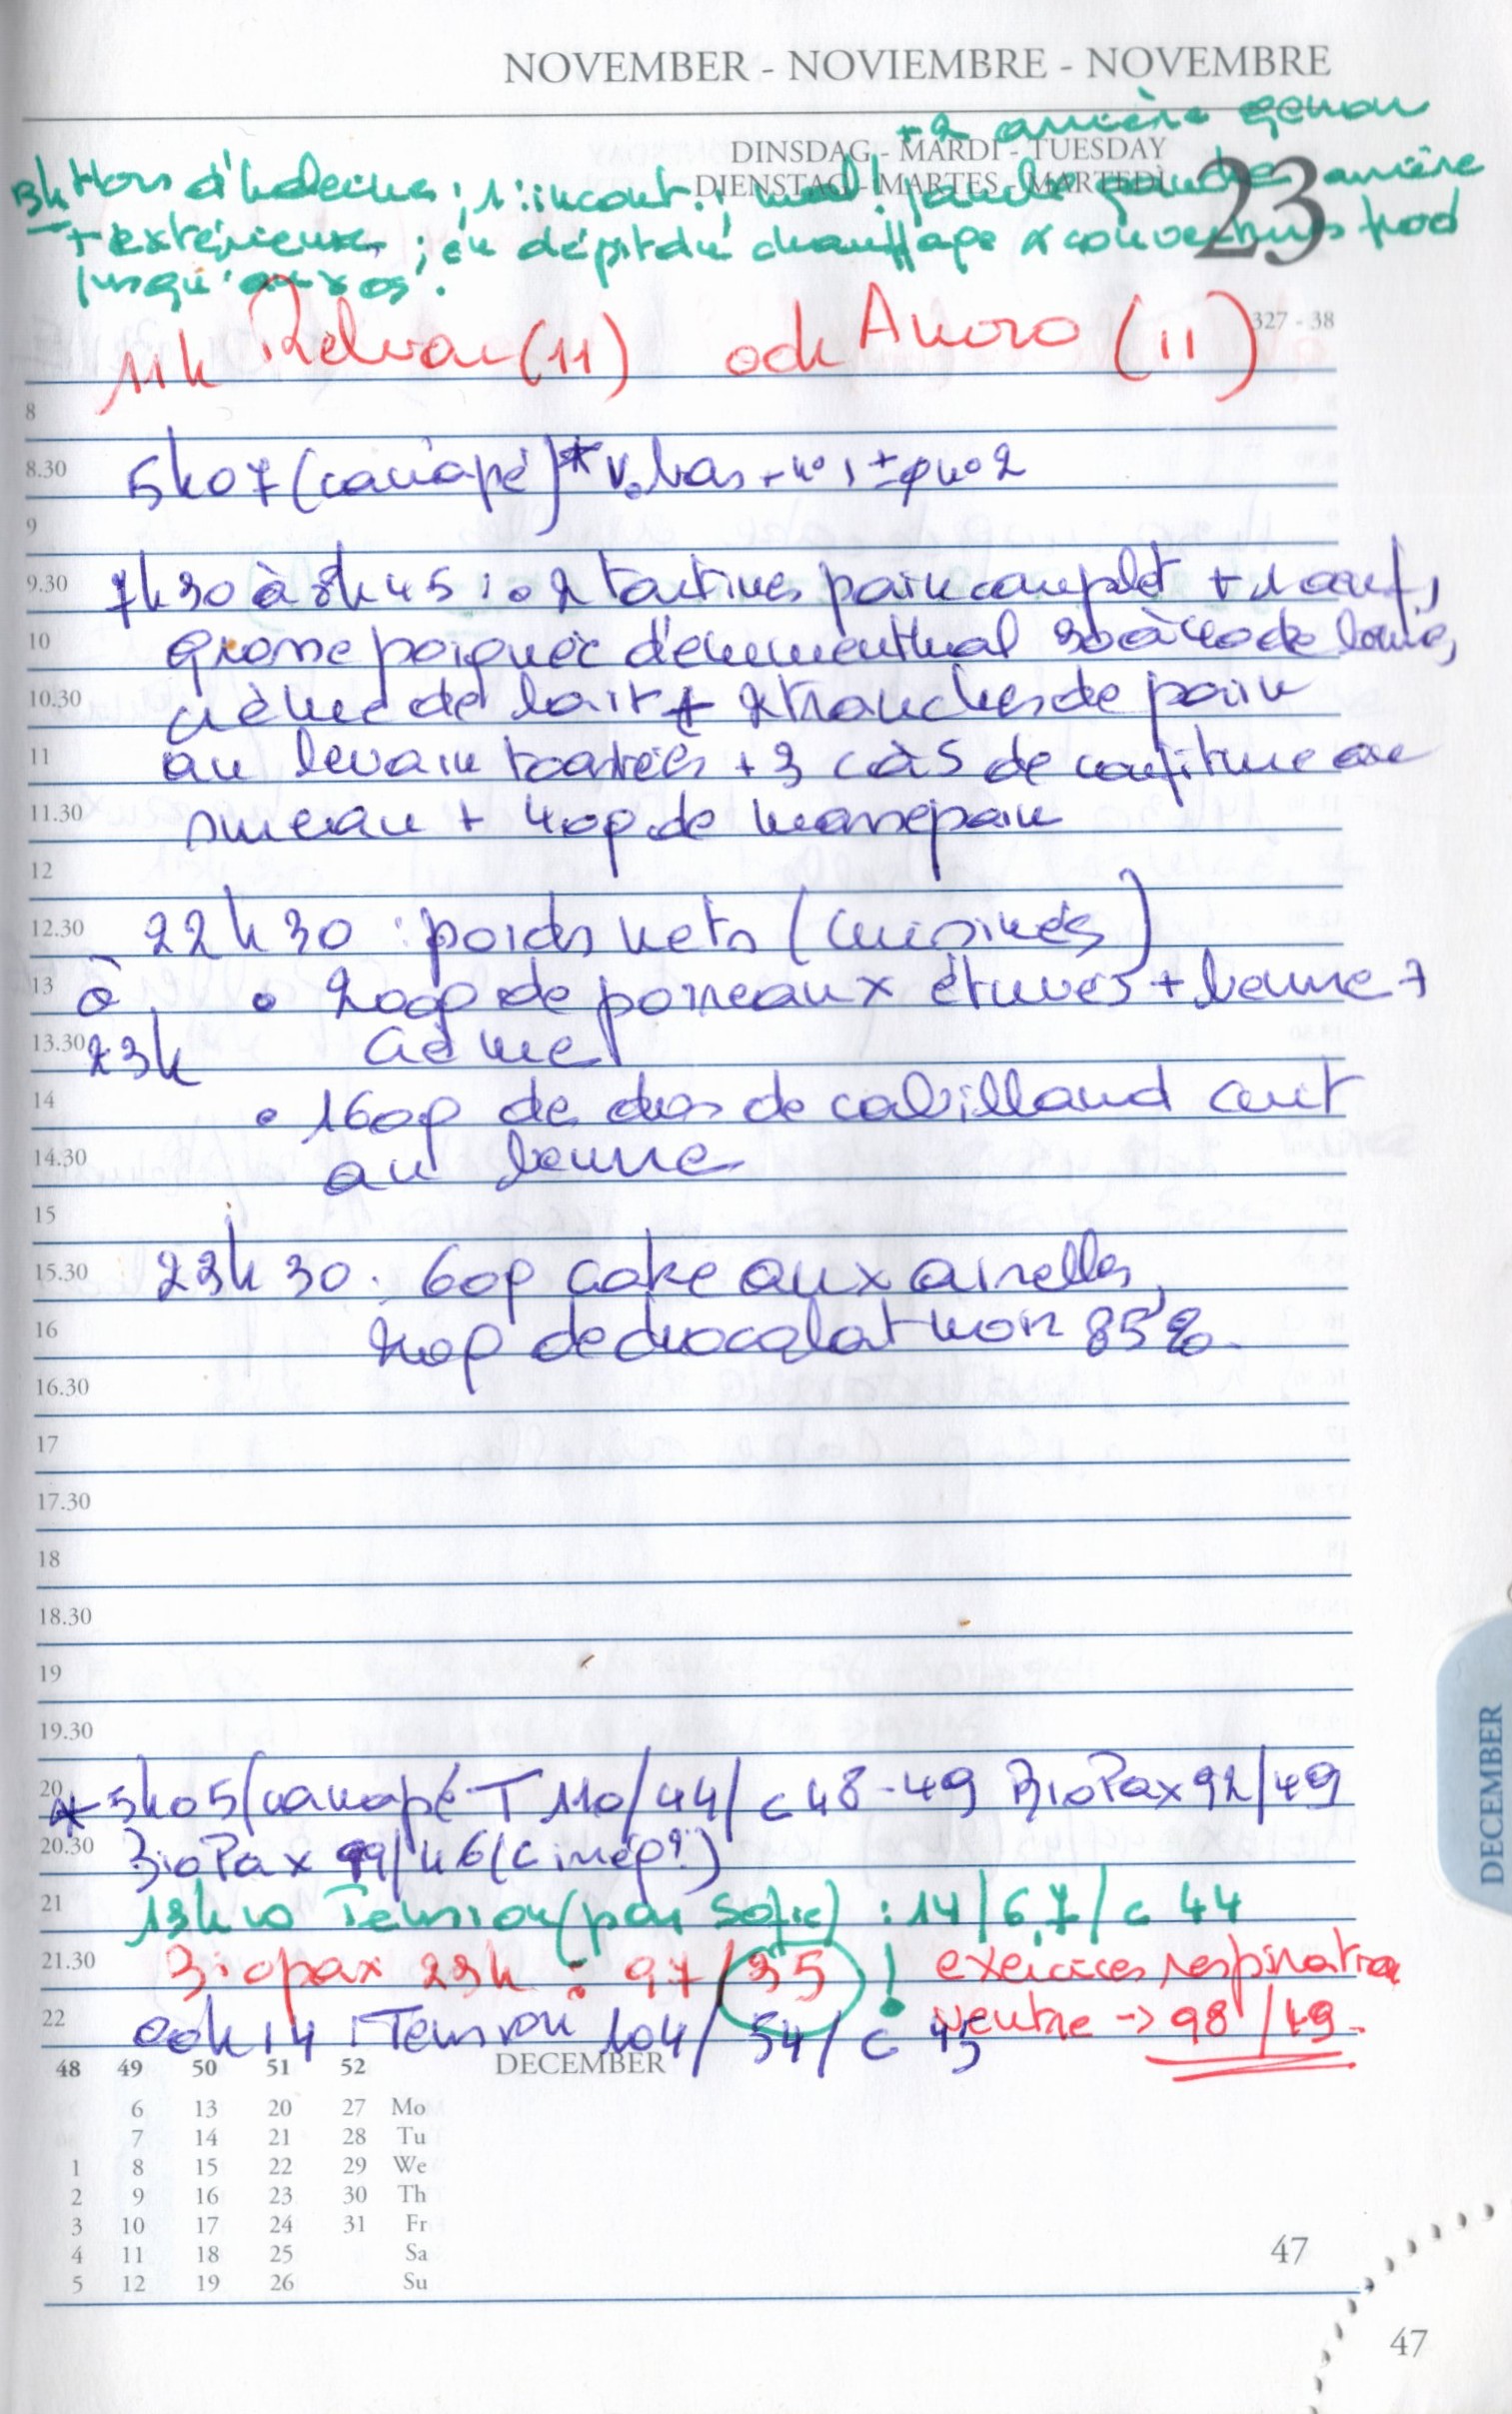 NOVEMBER - NOVIEMBRE - NOVEMBRE
+ 2 arrière genou
DINSDAG - MARDI - TUESDAY
DIENSTAG - MARTES - MARTEDÌ
23
13h Hors d'haleine ; 1 : incont. ; mal ! jambe gauche arrière
+ extérieure ; en dépit du chauffage & couvertures froid
jusqu'aux os.
327 - 38
11h Relvar (11) 00h Anoro (11)
8
8.30 5h07 (canapé)* V. bas + n° 1 ± n° 2
9
9.30 7h30 à 8h45 : 2 tartines pain complet + 1 œuf,
10 grosse poignée d'emmenthal 30 à 40 de
10.30 crème de lait + 2 tranches de pain
11 au levain toastées + 3 càs de confiture au
11.30 sureau + 40g de massepain
12
12.30 22h30 : poids nets (cuisinés)
13 à • 200g de poireaux étuvés + beurre +
13.30 23h crème
14 • 160g de dos de cabillaud cuit
14.30 au beurre
15
15.30 23h30 : 60g cake aux airelles,
16 20g de chocolat noir 85%
16.30
17
17.30
18
18.30
19
19.30
20 * 5h05 (canapé T 110/44/ c 48-49 BioPax 92/49
20.30 BioPax 99/46 (c irrég?)
21 13h10 Tension (par Sofie) : 14/6,7/ c 44
21.30 Biopax 23h : 97/35 ! exercices respiration
22 00h14 : Tension 104/54/ c 45 ventre -> 98/49.
DECEMBER
48 49 50 51 52
6 13 20 27 Mo
7 14 21 28 Tu
1 8 15 22 29 We
2 9 16 23 30 Th
3 10 17 24 31 Fr
4 11 18 25 Sa
5 12 19 26 Su
47
47
DECEMBER